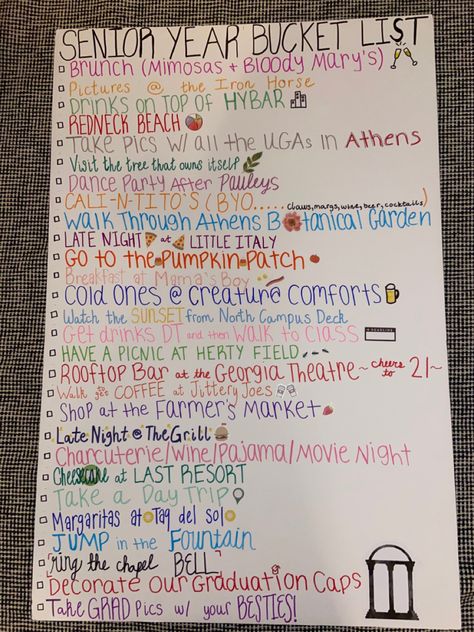 SENIOR YEAR BUCKET LIST
BRUNCH (Mimosas + Bloody Mary's)
Pictures @ the Iron Horse
DRINKS ON TOP OF HYBAR
REDNECK BEACH
TAKE PICS W/ all the UGAs in Athens
Visit the tree that owns itself
Dance Party After Pauleys
CALI-N-TITO'S (BYO.....claws, margs, wine, beer, cocktails)
Walk Through Athens Botanical Garden
LATE NIGHT at LITTLE ITALY
GO to the PUMPKIN PATCH
Breakfast at Mama's Boy
COLD ONES @ CREATURE COMFORTS
Watch the SUNSET from North Campus Deck
Get drinks DT and then WALK to CLASS
HAVE A PICNIC AT HERTY FIELD
ROOFTOP BAR at the GEORGIA THEATRE ~ cheers to 21~
Walk get COFFEE at Jittery Joes
SHOP at the FARMER'S MARKET
Late Night @ The Grill
Charcuterie/Wine/Pajama/Movie Night
at LAST RESORT
Take a Day Trip
Margaritas at Taq del Sol
JUMP in the Fountain
Ring the chapel BELL
Decorate Our Graduation Caps
Take GRAD Pics w/ your BESTIES!